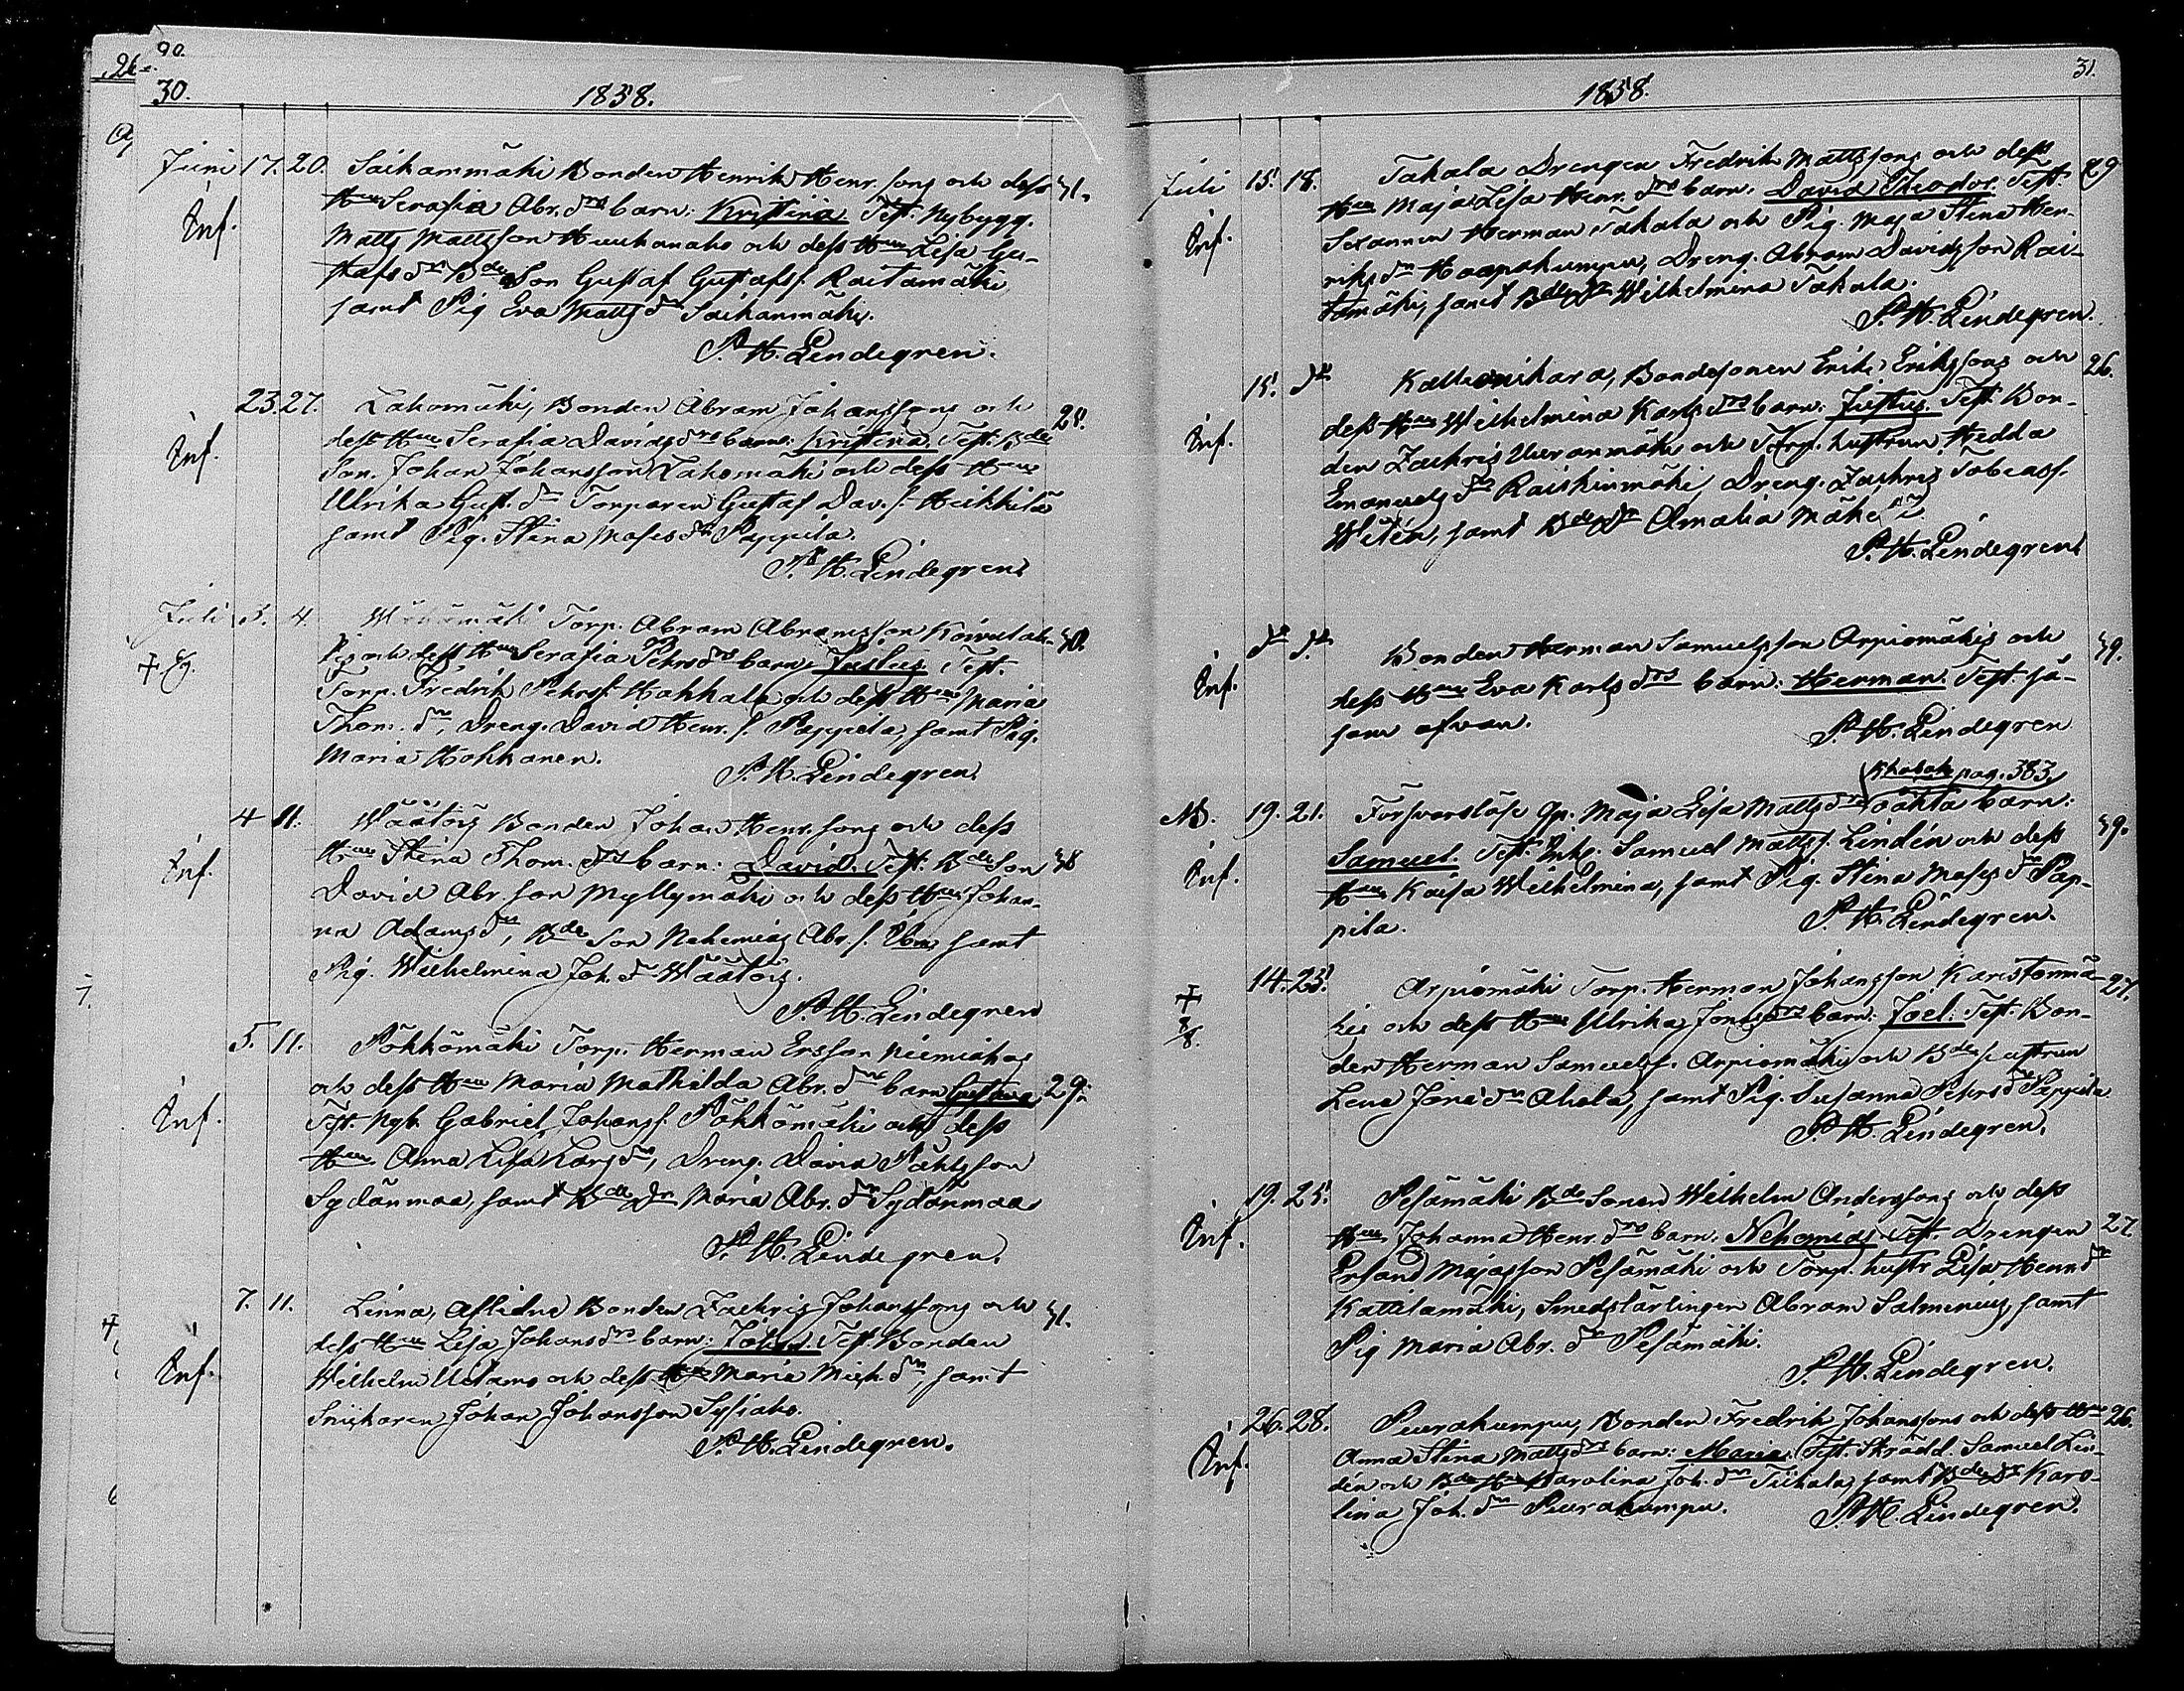 26.
90.
30.
1858.
Juni 17. 20. Saikanmäki Bonden Henrik Henr.sons och dess 31.
Inf. Hu Serafia Abr.drs barn: Kristina. Test: Nybygg.
Matts Mattsson Huuhanaho och dess Hu Lisa Gu-
stafsdr Bde Son Gustaf Gustafss. Raitamäki
samt Pig Eva Mattsdr Saikanmäki.
P. H. Lindegren.
23. 27. Lahomäki, Bonden Abram Johanssons och 25.
Inf. dess Hu Serafia Davidsdrs barn: Kristina. Test: Bde
Son. Johan Johansson Lahomäki och dess Hu
Ulrika Gust.dr Torparen Gustaf Dav.s. Heikkilä
samt Pig. Stina Mosesdr Pappila.
P. H. Lindegren.
Juli 3. 4. Torp. Abram Abramsson Koivulah- 30.
kis och dess Hu Serafia Pehrsdrs barn Justus Test.
Torp. Fredrik Pehrss. Hokkala och dess Hu Maria
Thom. dr, Dreng. David Henr. s. Pappila, samt Pig.
Maria Hokkanen.
P. H. Lindegren.
4 11. Wäätäis Bonden Johan Henr.sons och dess
Inf. Hu Stina Thom. drs barn: David. Test: Bde Son 38
David Abr.son Myllymäki och dess Hu Johan-
na Adamsdr, Bde Son Nehemias Abr.s. samt
Pig. Wilhelmina Joh.dr Wäätäis.
P. H. Lindegren
5. 11. Pökkömäki Torp. Herman Ersson Niemiahos
och dess Hu Maria Mathilda Abr.drs barn Gustava 29.
Inf. Test. Nyb. Gabriel Johanss. Pökkömäki och dess
Hu Anna Lisa Larsdr, Dreng. David Påhlsson
Sydänmaa, samt Bde Dr Maria Abr.dr Sydänmaa
P. H. Lindegren.
7. 11. Linna, Aflidne Bonden Zachris Johanssons och 31.
dess Hu Lisa Johansdrs barn: Johan. Test. Bonden
Inf. Wilhelm och dess Hu Maria Mich.dr, samt
Snickaren Johan Johansson Sysiaho.
P. H. Lindegren.
31.
1858.
Juli 15. 18. Takala Drengen Fredrik Mattssons och dess 29
Hu Maja Lisa Henr. drs barn: David Theodor. Test:
Inf. Sexannen Herman Takala och Pig. Maja Stina Hen-
riksdr Haapakumpu, Dreng. Abram Davidsson Rai-
tamäki, samt Wilhelmina Takala.
P. H. Lindegren.
15. do Bondesonen Erik Erikssons och 26.
Inf. dess Hu Wilhelmina Karlsdrs barn: Justus. Test: Bon-
den Zachris och Torp. hustrun Hedda
Emanuelsdr Raiskinmäki, Dreng. Zachris Tobiass.
Witén, samt Bde Dr Amalia Mäki
P. H. Lindegren
do do Bonden Herman Samuelsson Arpiomäkis och 39.
Inf. dess Hu Eva Karlsdrs barn: Herman. Test. så-
som ofvan.
P. H. Lindegren
pag. 383
No. 19. 21. Försvarslöse Qp. Maja Lisa Mattsdrs oäkta barn: 39.
Inf. Samuel. Test: Inh. Samuel Mattss. Lindén och dess
Hu Kaisa Wilhelmina, samt Pig. Stina Mosesdr Pap-
pila.
P. H. Lindegren.
14. 25. Arpiomäki Torp. Herman Johansson Karistonmä- 27.
kis och dess Hu Ulrika Jonasdrs barn: Joel. Test. Bon-
8/8. den Herman Samuelss. Arpiomäki och Bde hustrun
Lena Jonædr Ahola, samt Pig. Susanna Pehrsdr Pappila
P. H. Lindegren.
19. 25. Pesämäki Bde Sonen Wilhelm Anderssons och dess
Inf. Hu Johanna Henr.drs barn. Nehemias Test. Drengen 27.
Erland Majasson Pesämäki och Torp. hustr Lisa Henrdr
Kattilamäki, Smedslärlingen Abram Salmenius, samt
Pig Maria Abr. dr Pesämäki.
P. H. Lindegren.
26. 28. Peurakumpu, Bonden Fredrik Johanssons och dess Hu 26.
Inf. Anna Stina Mattsdrs barn: Maria. Test: Skrädd. Samuel Lin-
dén och Bde Hu Karolina Joh.dr Tiikala, samt Bde Dr Karo-
lina Joh. dr Peurakumpu. P. H. Lindegren.